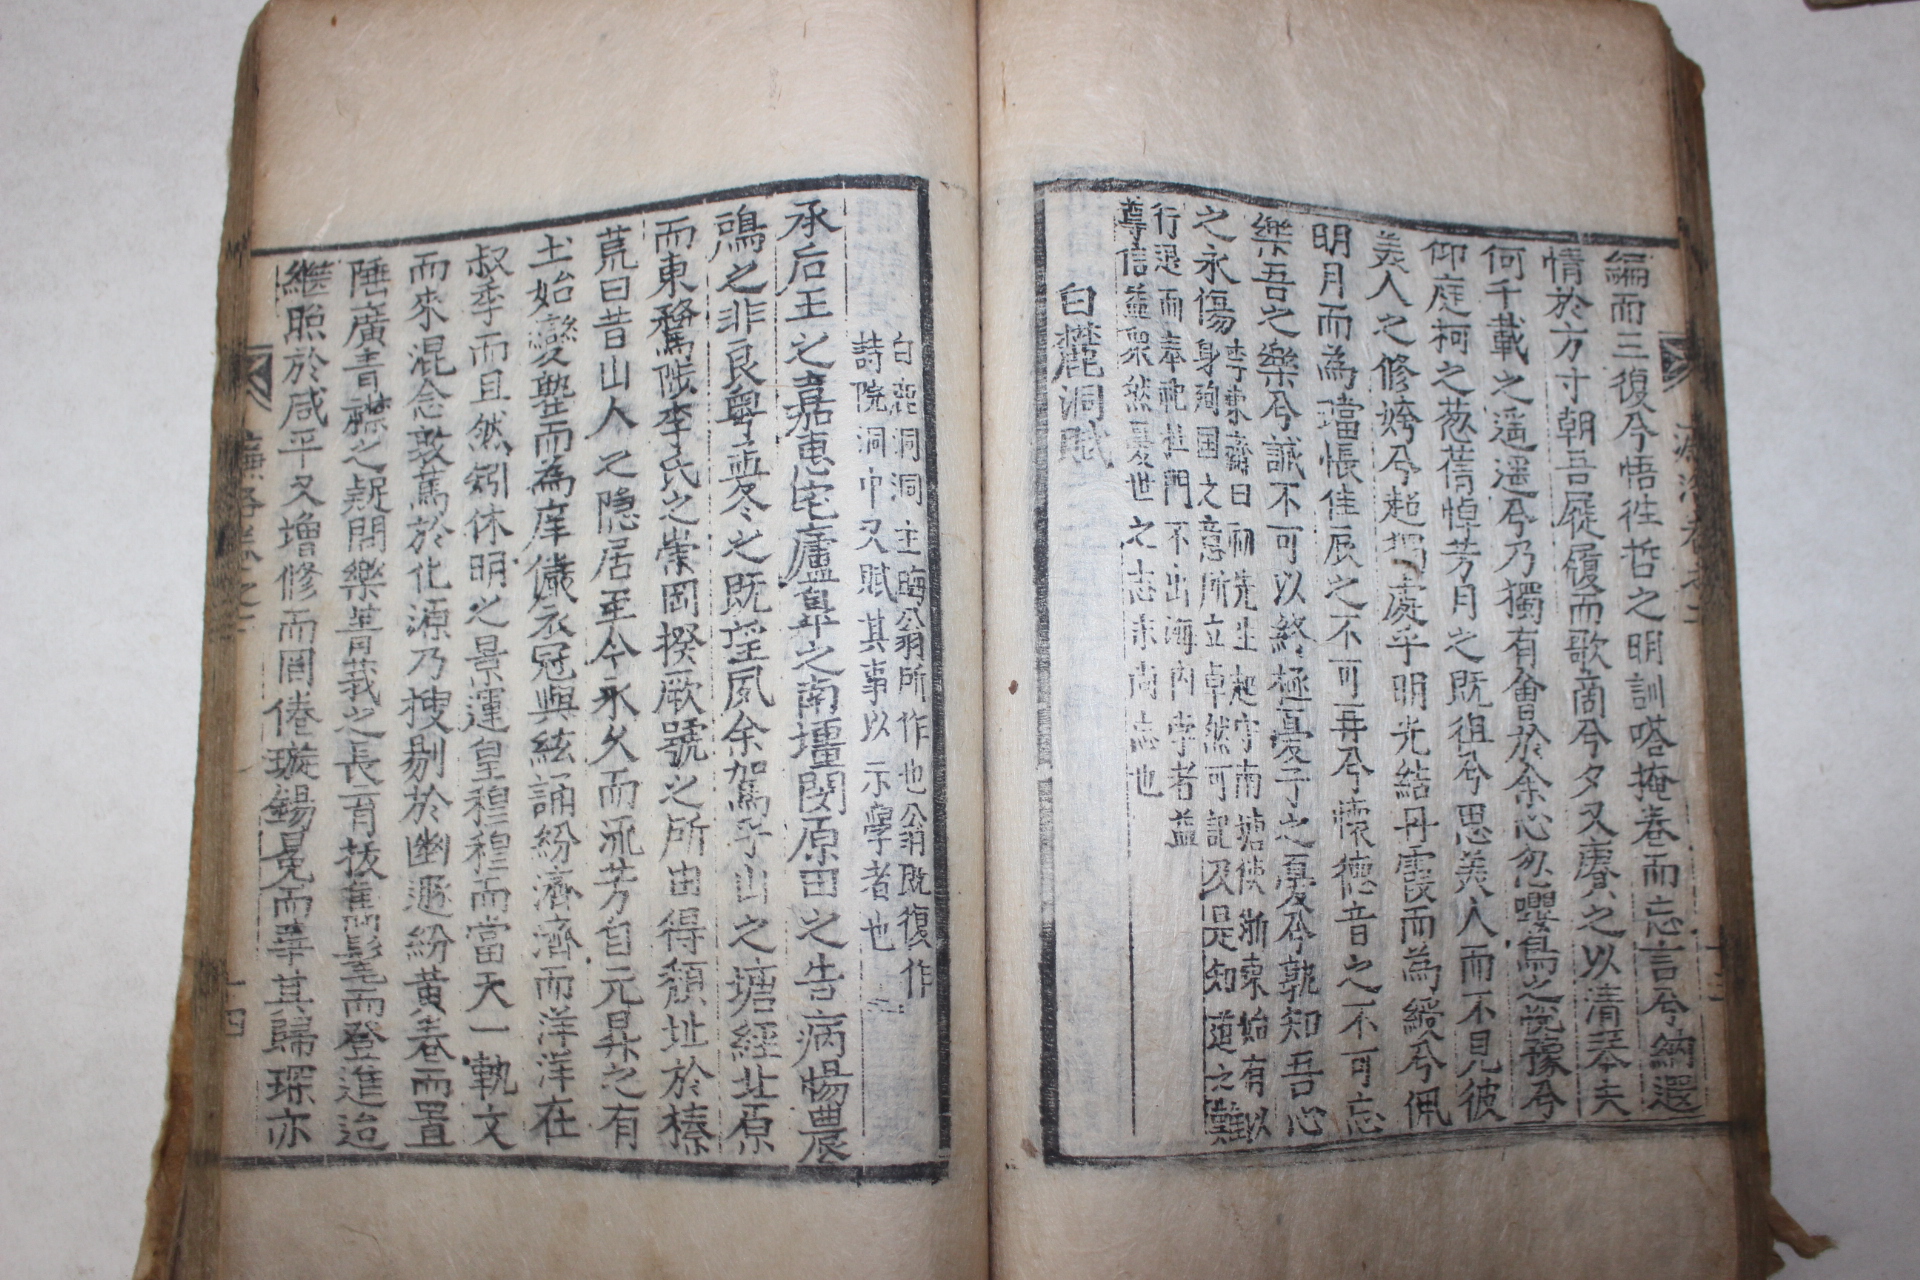 編而三復兮悟徃哲之明訓嗒掩卷而忘言兮納遐
情於方寸朝吾屣履而歌商兮夕又賡之以清琴夫
何千載之遥遥兮乃獨有會於余心忽嚶鳥之悦豫兮
仰庭柯之葱蒨悼芳月之既徂兮思美人而不見彼
美人之修姱兮超獨處乎明光結丹霞而為綬兮佩
明月而為璫悵佳辰之不可再兮懷德音之不可忘
樂吾之樂兮誠不可以終極憂子之憂兮孰知吾心
之永傷
李東齋曰初先生起守南塘使浙東始有以
身殉国之意所立卓然可記及是知道之難
行退而奉祀杜門不出海内李者益
尊信益衆然憂世之志未尚忘也
白麓洞賦
白鹿洞洞主晦翁所作也翁既復作
詩院洞中又賦其事以示學者也
承后王之嘉惠宅廬阜之南壃閔原田之告病惕農
鳸之非良粤孟冬之既望夙余駕乎山之塘經北原
而東騖陟李氏之崇岡揆厥號之所由得頽址於榛
荒曰昔山人之隠居至今永久而流芳自元昇之有
土始變塾而為庠儼衣冠與絃誦紛濟濟而洋洋在
叔季而且然矧休明之景運皇穆穆而當天一軌文
而來混念敦篤於化源乃搜剔於幽遯紛黄卷而置
陲廣青襟之疑問樂菁莪之長育拔雋髦而登進迨
継照於咸平又增修而罔倦璇錫冕而華其歸琛亦
十四